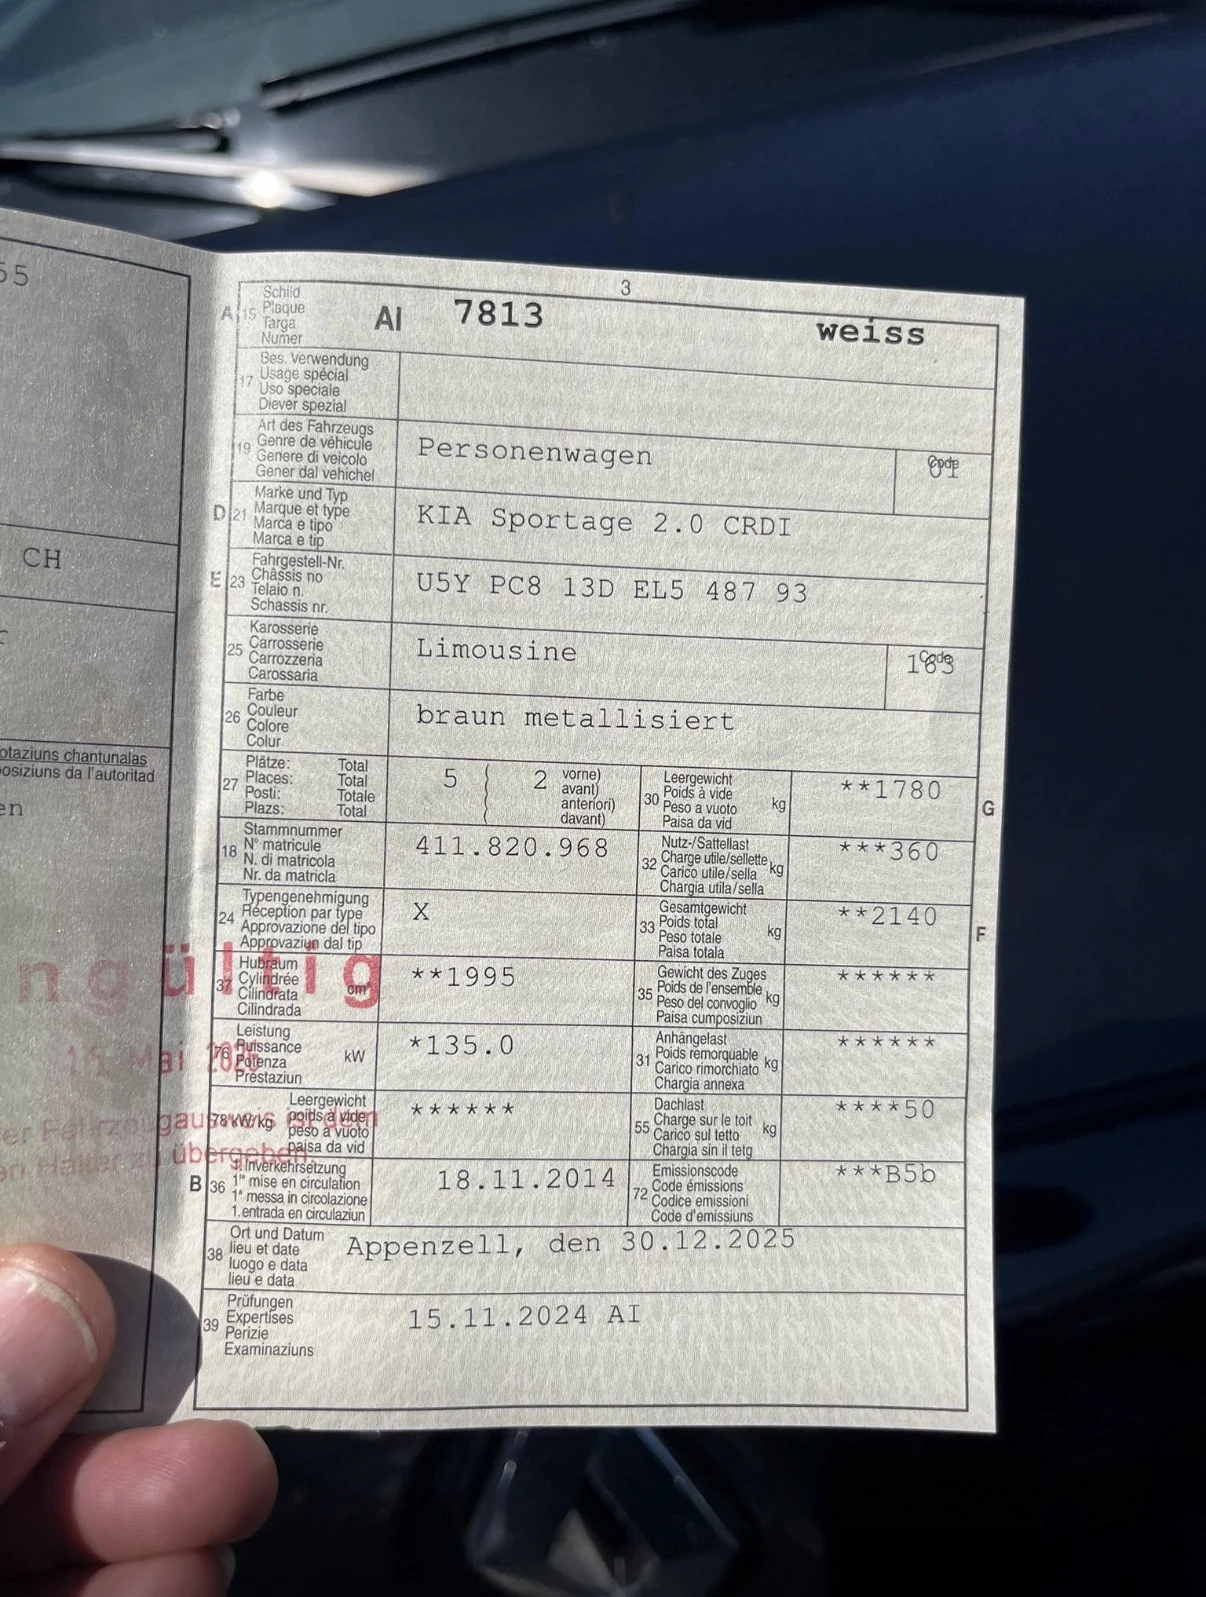 55
CH
otaziuns chantunalas
posiziuns da l'autoritad
en
3
A 15 Schild
Plaque
Targa
Numer
AI 7813 weiss
17 Bes. Verwendung
Usage spécial
Uso speciale
Diever spezial
19 Art des Fahrzeugs
Genre de véhicule
Genere di veicolo
Gener dal vehichel
Personenwagen
Code
01
D 21 Marke und Typ
Marque et type
Marca e tipo
Marca e tip
KIA Sportage 2.0 CRDI
E 23 Fahrgestell-Nr.
Châssis no
Telaio n.
Schassis nr.
U5Y PC8 13D EL5 487 93
25 Karosserie
Carrosserie
Carrozzeria
Carossaria
Limousine
Code
26 Farbe
Couleur
Colore
Colur
braun metallisiert
27 Plätze: Total
Places: Total
Posti: Totale
Plazs: Total
5 2 vorne)
avant)
anteriori)
davant)
30 Leergewicht
Poids à vide
Peso a vuoto
Paisa da vid
kg
**1780
G
18 Stammnummer
N° matricule
N. di matricola
Nr. da matricla
411.820.968
32 Nutz-/Sattellast
Charge utile/sellette
Carico utile/sella
Chargia utila/sella
kg
***360
24 Typengenehmigung
Réception par type
Approvazione del tipo
Approvaziun dal tip
X
33 Gesamtgewicht
Poids total
Peso totale
Paisa totala
kg
**2140
F
37 Hubraum
Cylindrée
Cilindrata
Cilindrada
cm³
**1995
35 Gewicht des Zuges
Poids de l'ensemble
Peso del convoglio
Paisa cumposiziun
kg
******
76 Leistung
Puissance
Potenza
Prestaziun
kW
*135.0
31 Anhängelast
Poids remorquable
Carico rimorchiato
Chargia annexa
kg
******
78 kW/kg Leergewicht
poids à vide
peso a vuoto
paisa da vid
******
55 Dachlast
Charge sur le toit
Carico sul tetto
Chargia sin il tetg
kg
****50
B 36 1. Inverkehrsetzung
1re mise en circulation
1a messa in circolazione
1. entrada en circulaziun
18.11.2014
72 Emissionscode
Code émissions
Codice emissioni
Code d'emissiuns
***B5b
38 Ort und Datum
lieu et date
luogo e data
lieu e data
Appenzell, den 30.12.2025
39 Prüfungen
Expertises
Perizie
Examinaziuns
15.11.2024 AI
ngültig
Mai
er Fahrzeugausweis ist dem
en Halter zu übergeben.